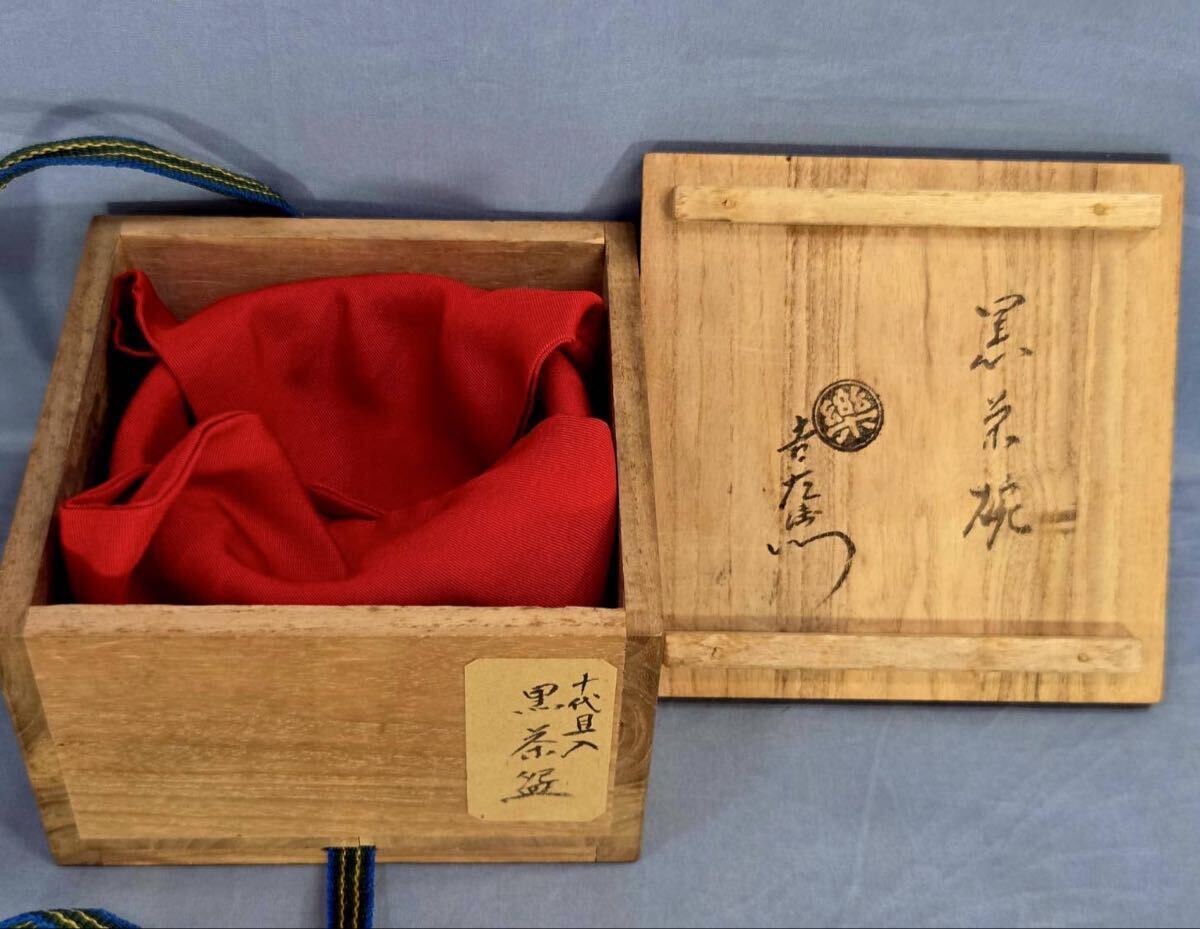 黒茶碗
樂
吉左衛門
十代目入
黒茶盌